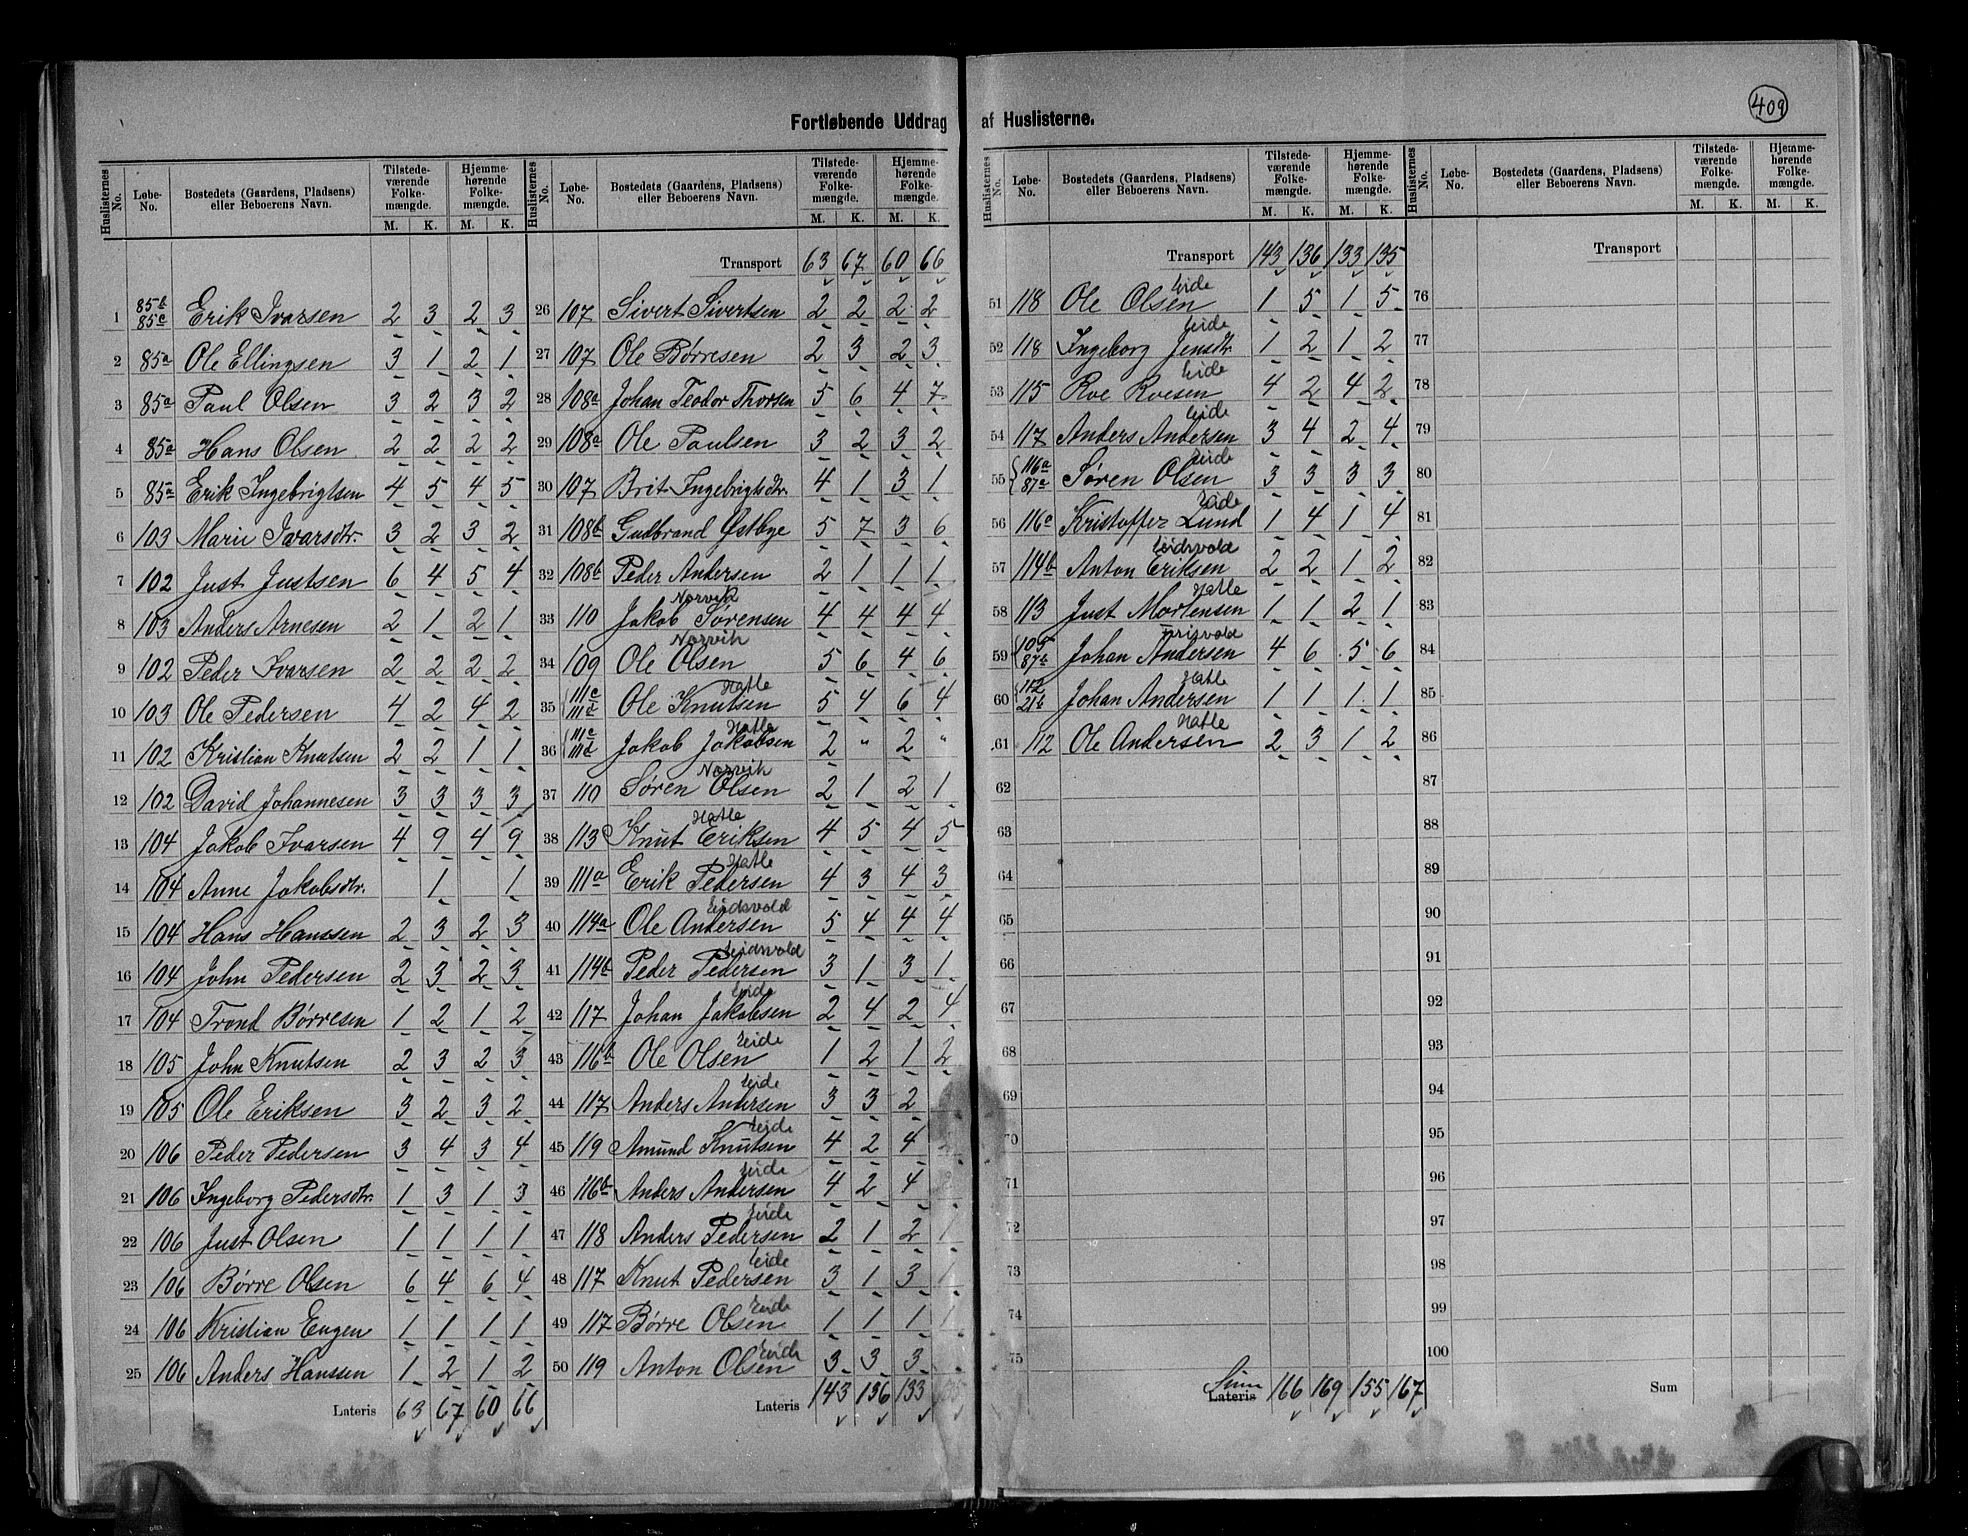 409
Fortløbende Uddrag af Huslisterne.
Huslisternes No. Løbe-No. Bostedets (Gaardens, Pladsens) eller Beboerens Navn. Tilstede-værende Folke-mængde. M. K. Hjemme-hørende Folke-mængde. M. K.
1 85b 85c Erik Ivarsen 2 3 2 3
2 85a Ole Ellingsen 3 1 2 1
3 85a Paul Olsen 3 2 3 2
4 85a Hans Olsen 2 2 2 2
5 85a Erik Ingebrigtsen 4 5 4 5
6 103 Marie Ivarsdtr. 3 2 3 2
7 102 Just Justsen 6 4 5 4
8 103 Anders Arnesen 2 1 2 1
9 102 Peder Ivarsen 2 2 2 2
10 103 Ole Pedersen 4 2 4 2
11 102 Kristian Knutsen 2 2 1 1
12 102 David Johannesen 3 3 3 3
13 104 Jakob Ivarsen 4 9 4 9
14 104 Anne Jakobsdtr. 1 1
15 104 Hans Hanssen 2 3 2 3
16 104 John Pedersen 2 3 2 3
17 104 Trond Børresen 1 2 1 2
18 105 John Knutsen 2 3 2 3
19 105 Ole Eriksen 3 2 3 2
20 106 Peder Pedersen 3 4 3 4
21 106 Ingeborg Pedersdtr. 1 3 1 3
22 106 Just Olsen 1 1 1 1
23 106 Børre Olsen 6 4 6 4
24 106 Kristian Engen 1 1 1 1
25 106 Anders Hanssen 1 2 1 2
Lateris 63 67 60 66
Huslisternes No. Løbe-No. Bostedets (Gaardens, Pladsens) eller Beboerens Navn. Tilstede-værende Folke-mængde. M. K. Hjemme-hørende Folke-mængde. M. K.
Transport 63 67 60 66
26 107 Sivert Sivertsen 2 2 2 2
27 107 Ole Børresen 2 3 2 3
28 108a Johan Teodor Thorsen 5 6 4 7
29 108a Ole Paulsen 3 2 3 2
30 107 Brit Ingebrigtsdtr. 4 1 3 1
31 108b Gudbrand Østbye 5 7 3 6
32 108b Peder Andersen 2 1 1 1
Norvik
33 110 Jakob Sørensen 4 4 4 4
Norvik
34 109 Ole Olsen 5 6 4 6
Hatle
35 111c 111d Ole Knutsen 5 4 6 4
Hatle
36 111c 111d Jakob Jakobsen 2 " 2 "
Norvik
37 110 Søren Olsen 2 1 2 1
Hatle
38 113 Knut Eriksen 4 5 4 5
Hatle
39 111a Erik Pedersen 4 3 4 3
Eidsvold
40 114a Ole Andersen 5 4 4 4
Eidsvold
41 114b Peder Pedersen 3 1 3 1
Eide
42 117 Johan Jakobsen 2 4 2 4
Eide
43 116b Ole Olsen 1 2 1 2
Eide
44 117 Anders Andersen 3 3 2
Eide
45 119 Amund Knutsen 4 2 4
Eide
46 116b Anders Andersen 4 2 4
Eide
47 118 Anders Pedersen 2 1 2 1
Eide
48 117 Knut Pedersen 3 1 3 1
Eide
49 117 Børre Olsen 1 1 1 1
Eide
50 119 Anton Olsen 3 3 3
Lateris 143 136 133 135
Huslisternes No. Løbe-No. Bostedets (Gaardens, Pladsens) eller Beboerens Navn. Tilstede-værende Folke-mængde. M. K. Hjemme-hørende Folke-mængde. M. K.
Transport 143 136 133 135
Eide
51 118 Ole Olsen 1 5 1 5
Eide
52 118 Ingeborg Jensdtr. 1 2 1 2
Eide
53 115 Roe Roesen 4 2 4 2
Eide
54 117 Anders Andersen 3 4 2 4
Eide
55 116a 87a Søren Olsen 3 3 3 3
Eide
56 116a Kristoffer Lund 1 4 1 4
Eidsvold
57 114b Anton Eriksen 2 2 1 2
Hatle
58 113 Just Mortensen 1 1 2 1
59 105 87b Johan Andersen 4 6 5 6
Hatle
60 112 21b Johan Andersen 1 1 1 1
Hatle
61 112 Ole Andersen 2 3 1 2
62
63
64
65
66
67
68
69
70
71
72
73
74
75
Sum Lateris 166 169 155 167
Huslisternes No. Løbe-No. Bostedets (Gaardens, Pladsens) eller Beboerens Navn. Tilstede-værende Folke-mængde. M. K. Hjemme-hørende Folke-mængde. M. K.
Transport
76
77
78
79
80
81
82
83
84
85
86
87
88
89
90
91
92
93
94
95
96
97
98
99
100
Sum